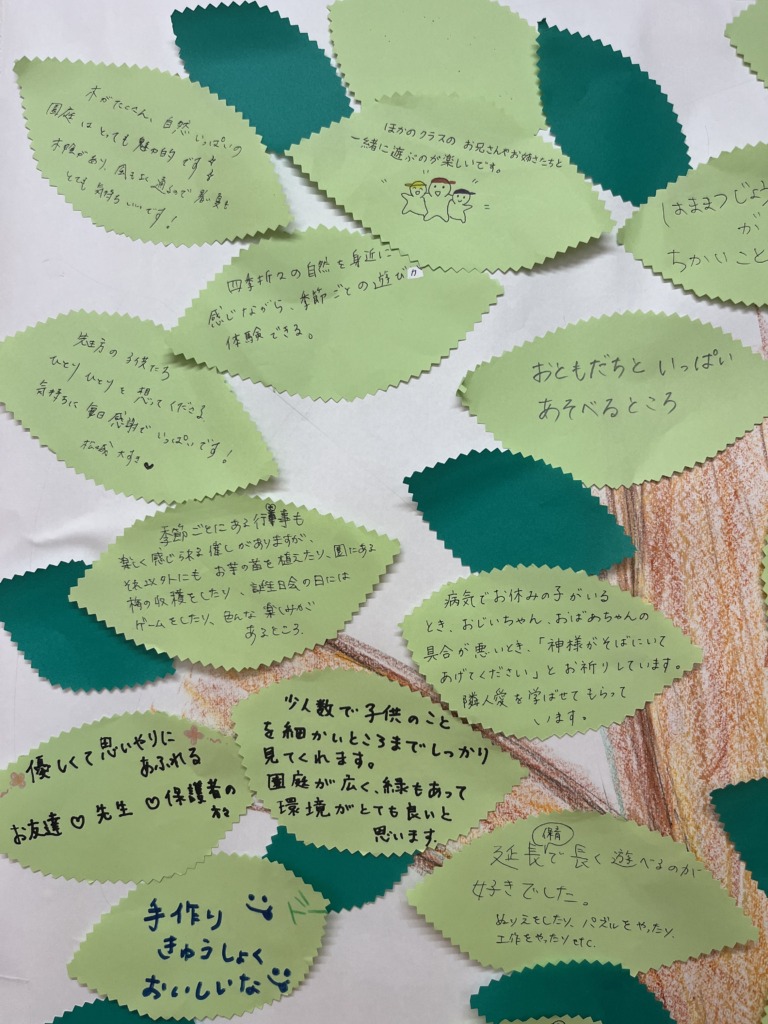 木がたくさん、自然いっぱいの
園庭はとても魅力的です
木陰があり、風もよく通るので暑い夏も
とても気持ちいいです!
ほかのクラスの お兄さんやお姉さんたちと
一緒に遊ぶのが楽しいです。
はままつじょう
が
ちかいこと
四季折々の自然を身近に
感じながら、季節ごとの遊びが
体験できる。
おともだちと いっぱい
あそべるところ
先生方の子供たち
ひとりひとりを想ってくださる
気持ちに毎日感謝でいっぱいです!
松城大すき♥
季節ごとにある行事も
楽しく感じられる催しがありますが、
それ以外にも お芋の苗を植えたり、園にある
梅の収穫をしたり、誕生日会の日には
ゲームをしたり、色んな楽しみが
あるところ.
病気でお休みの子がいる
とき、おじいちゃん、おばあちゃんの
具合が悪いとき、「神様がそばにいて
あげてください」と お祈りしています。
隣人愛を学ばせてもらって
います。
少人数で子供のこと
を細かいところまでしっかり
見てくれます。
園庭が広く、緑もあって
環境がとても良いと
思います.
優しくて思いやりに
あふれる
お友達♡先生♡保護者の
方々
延長保育で長く遊べるのが
好きでした。
ぬりえをしたり、パズルをやったり、
工作をやったりetc.
手作り
きゅうしょく
おいしいな